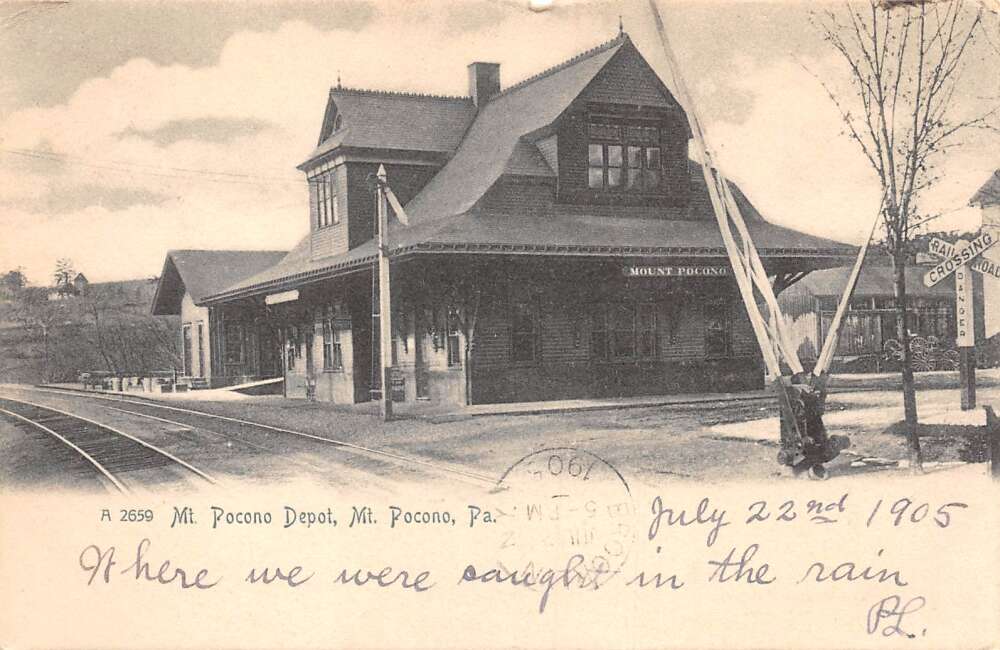 MOUNT POCONO
RAIL ROAD
CROSSING
DANGER
A 2659 Mt. Pocono Depot, Mt. Pocono, Pa.
1905
5-PM
July 22nd 1905
Where we were caught in the rain
PL.